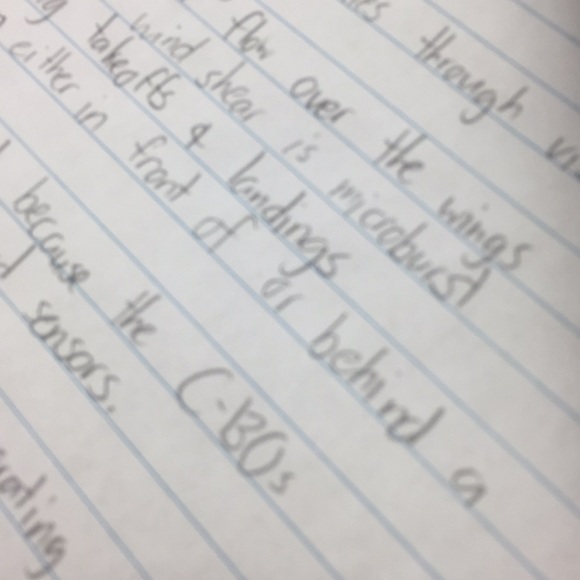 through
flow over the wings
wind shear is microburst
takeoffs & landings
either in front of or behind a
because the C-BOs
sensors.